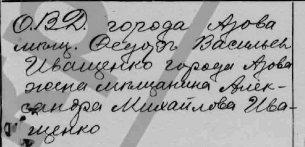 О.В.Д. города Азова
мѣщ. Ѳедоръ Васильев
Иващенко города Азова
жена мѣщанина Алек-
сандра Михайлова Ива-
щенко